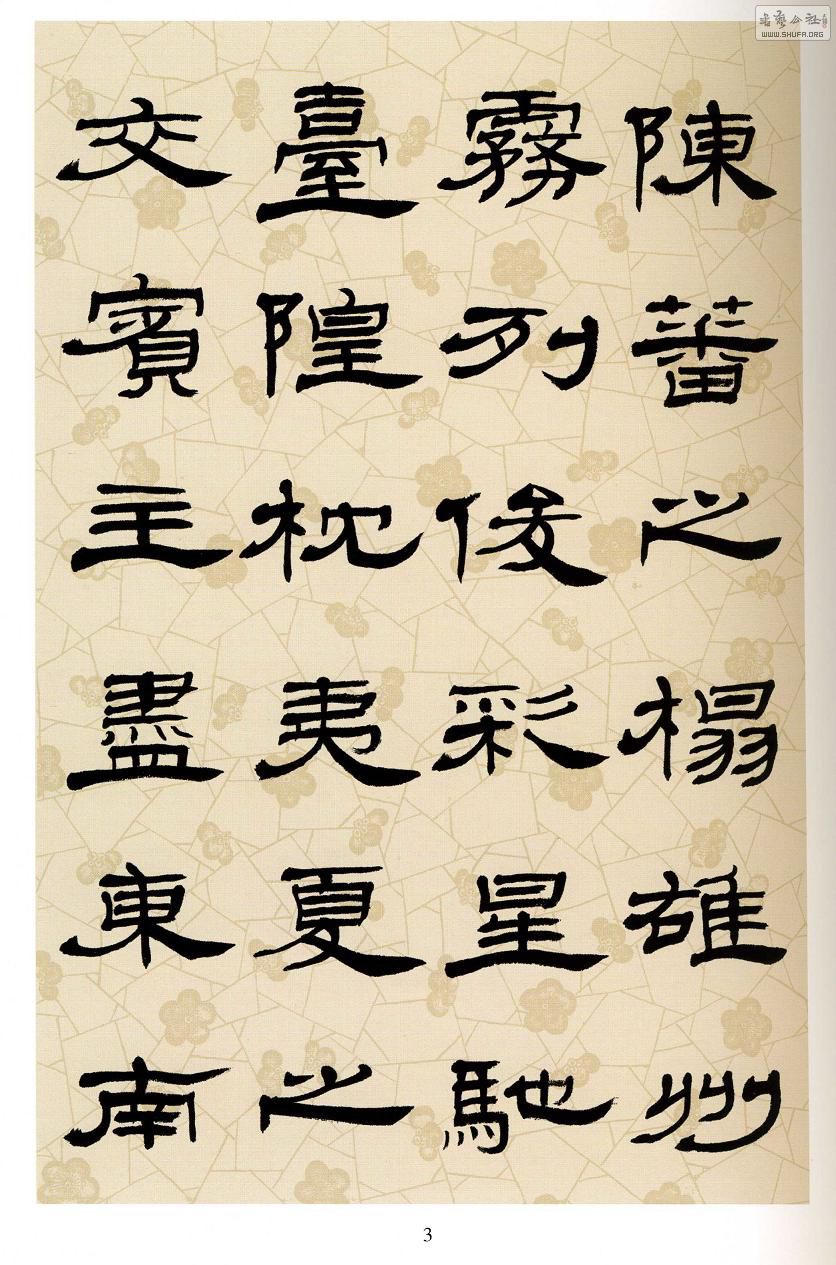 陳蕃之榻雄州
霧列俊彩星馳
臺隍枕夷夏之
交賓主盡東南
3
书艺公社
WWW.SHUFA.ORG